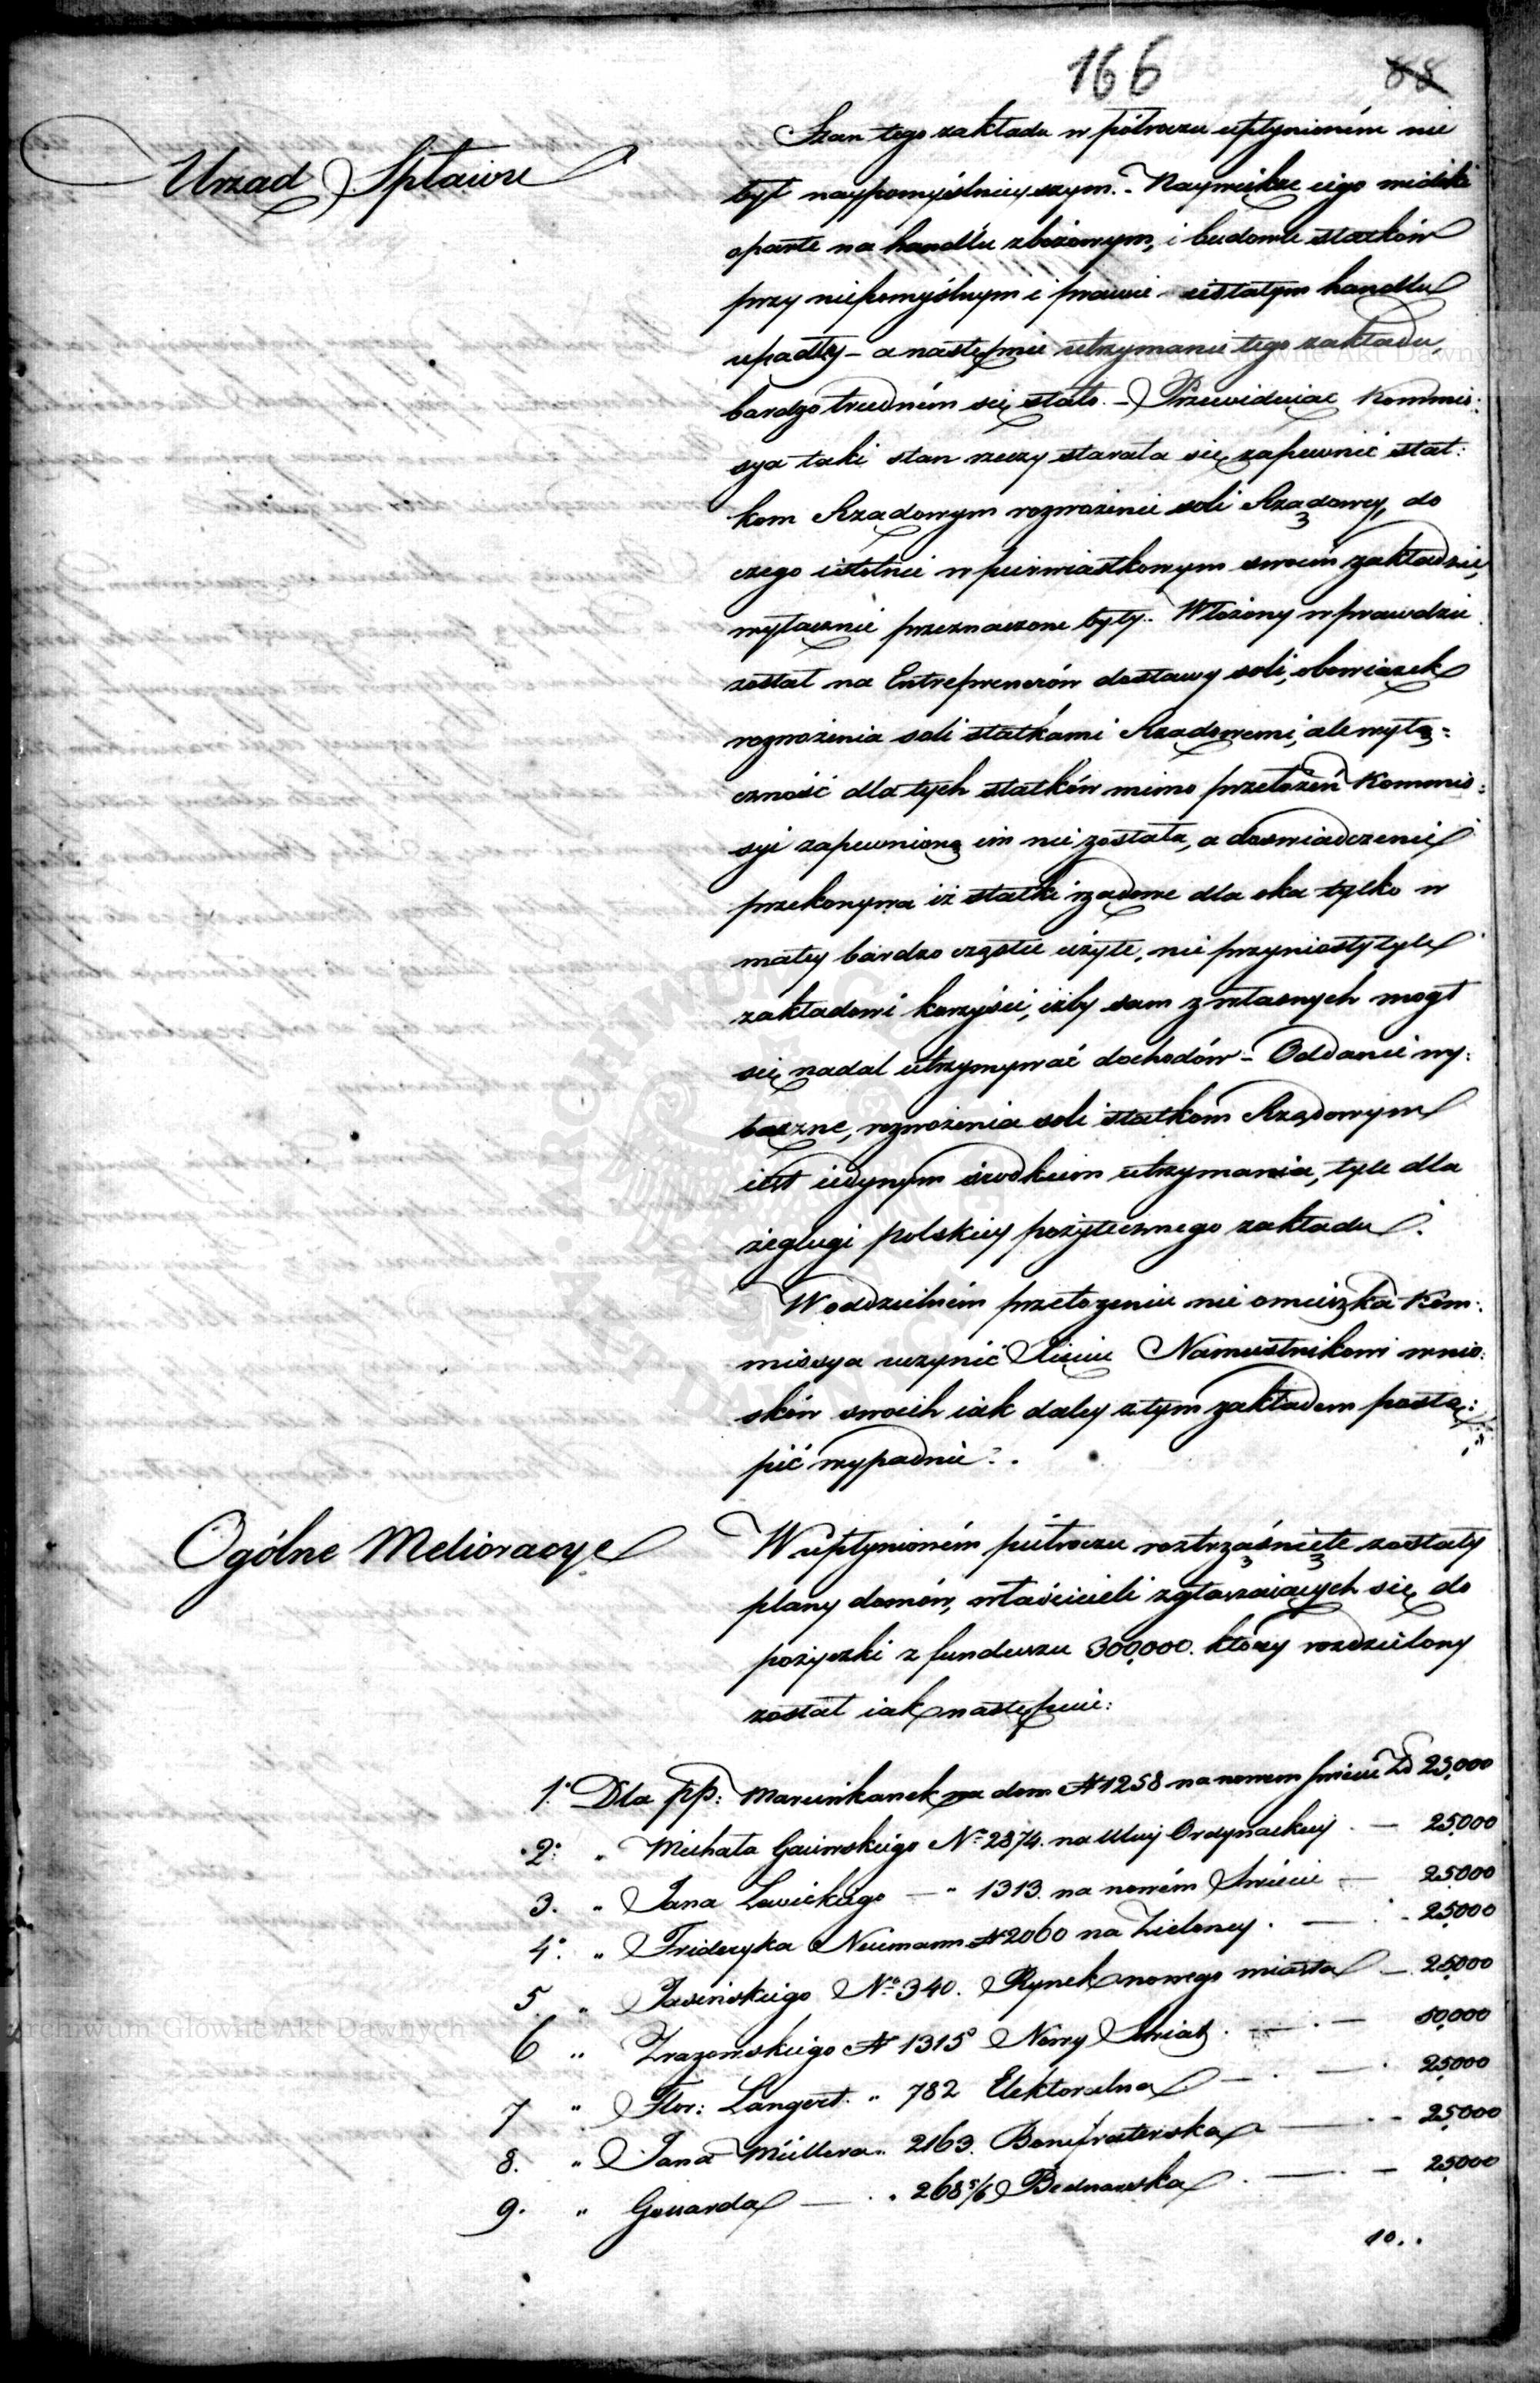 166 88
Urząd Spławu
Stan tego zakładu w półroczu upłynioném nie
był naypomyślnieyszym. – Naywiększe iego widoki
oparte na handlu zbożowym, i budowle statków
przy niepomyślnym i prawie ustałym handlu
upadły – a następnie utrzymanie tego zakładu,
bardzo trudném się stało. – Przewidując Kommis:
sya taki stan rzeczy starała się zapewnić stat:
kom Rządowym rozwożenie soli Rządowey, do
czego istotnie w pierwiastkowym swoim zakładzie,
wyłącznie przeznaczone były. Włożony wprawdzie
został na Entreprenerów dostawy soli, obowiązek
rozwożenia soli statkami Rządowemi, ale wyłą=
czność dla tych statków mimo przełożeń Kommis:
syi zapewnioną im nie została, a doświadczenie
przekonywa iż statki rządowe dla oka tylko w
małey bardzo części użyte, nie przyniosły tyle
zakładowi korzyści, iżby sam z własnych mógł
się nadal utrzymywać dochodów – Oddanie wy:
łączne, rozwożenia soli statkom Rządowym
iest iedynym środkiem utrzymania, tyle dla
żeglugi polskiey pożytecznego zakładu.
W oddzielném przełożeniu nie omieszka Kom:
missya uczynić Xięciu Namiestnikowi wnio:
sków swoich iak daley z tym zakładem postą:
pić wypadnie.
Ogólne Melioracye
W upłynioném półroczu roztrząśnięte zostały
plany domów, właścicieli zgłaszaiących się do
pożyczki z funduszu 300,000. który rozdzielony
został iak następuie:
1. Dla pp: Marcinkanek na dom N 1258 na nowem świecie Zł 25,000
2. " Michała Gacimskiego No 2874. na Ulicy Ordynackiey. — 25,000
3. " Jana Lewickiego — " 1313. na nowém Świecie — 25,000
4. " Frideryka Neumann N 2060 na Zieloney. — 25,000
5 " Jasińskiego No 340. Rynek nowego miasta — 25,000
6 " Zrazowskiego N 1315 Nowy Świat. — 50,000
7 " Flor: Langert. " 782 Elektoralna — 25,000
8. " Jana Müllera " 2163. Bonifraterska — 25,000
9. " Gouarda — " 268 5/6 Bednarska — 25,000
10..
Archiwum Główne Akt Dawnych